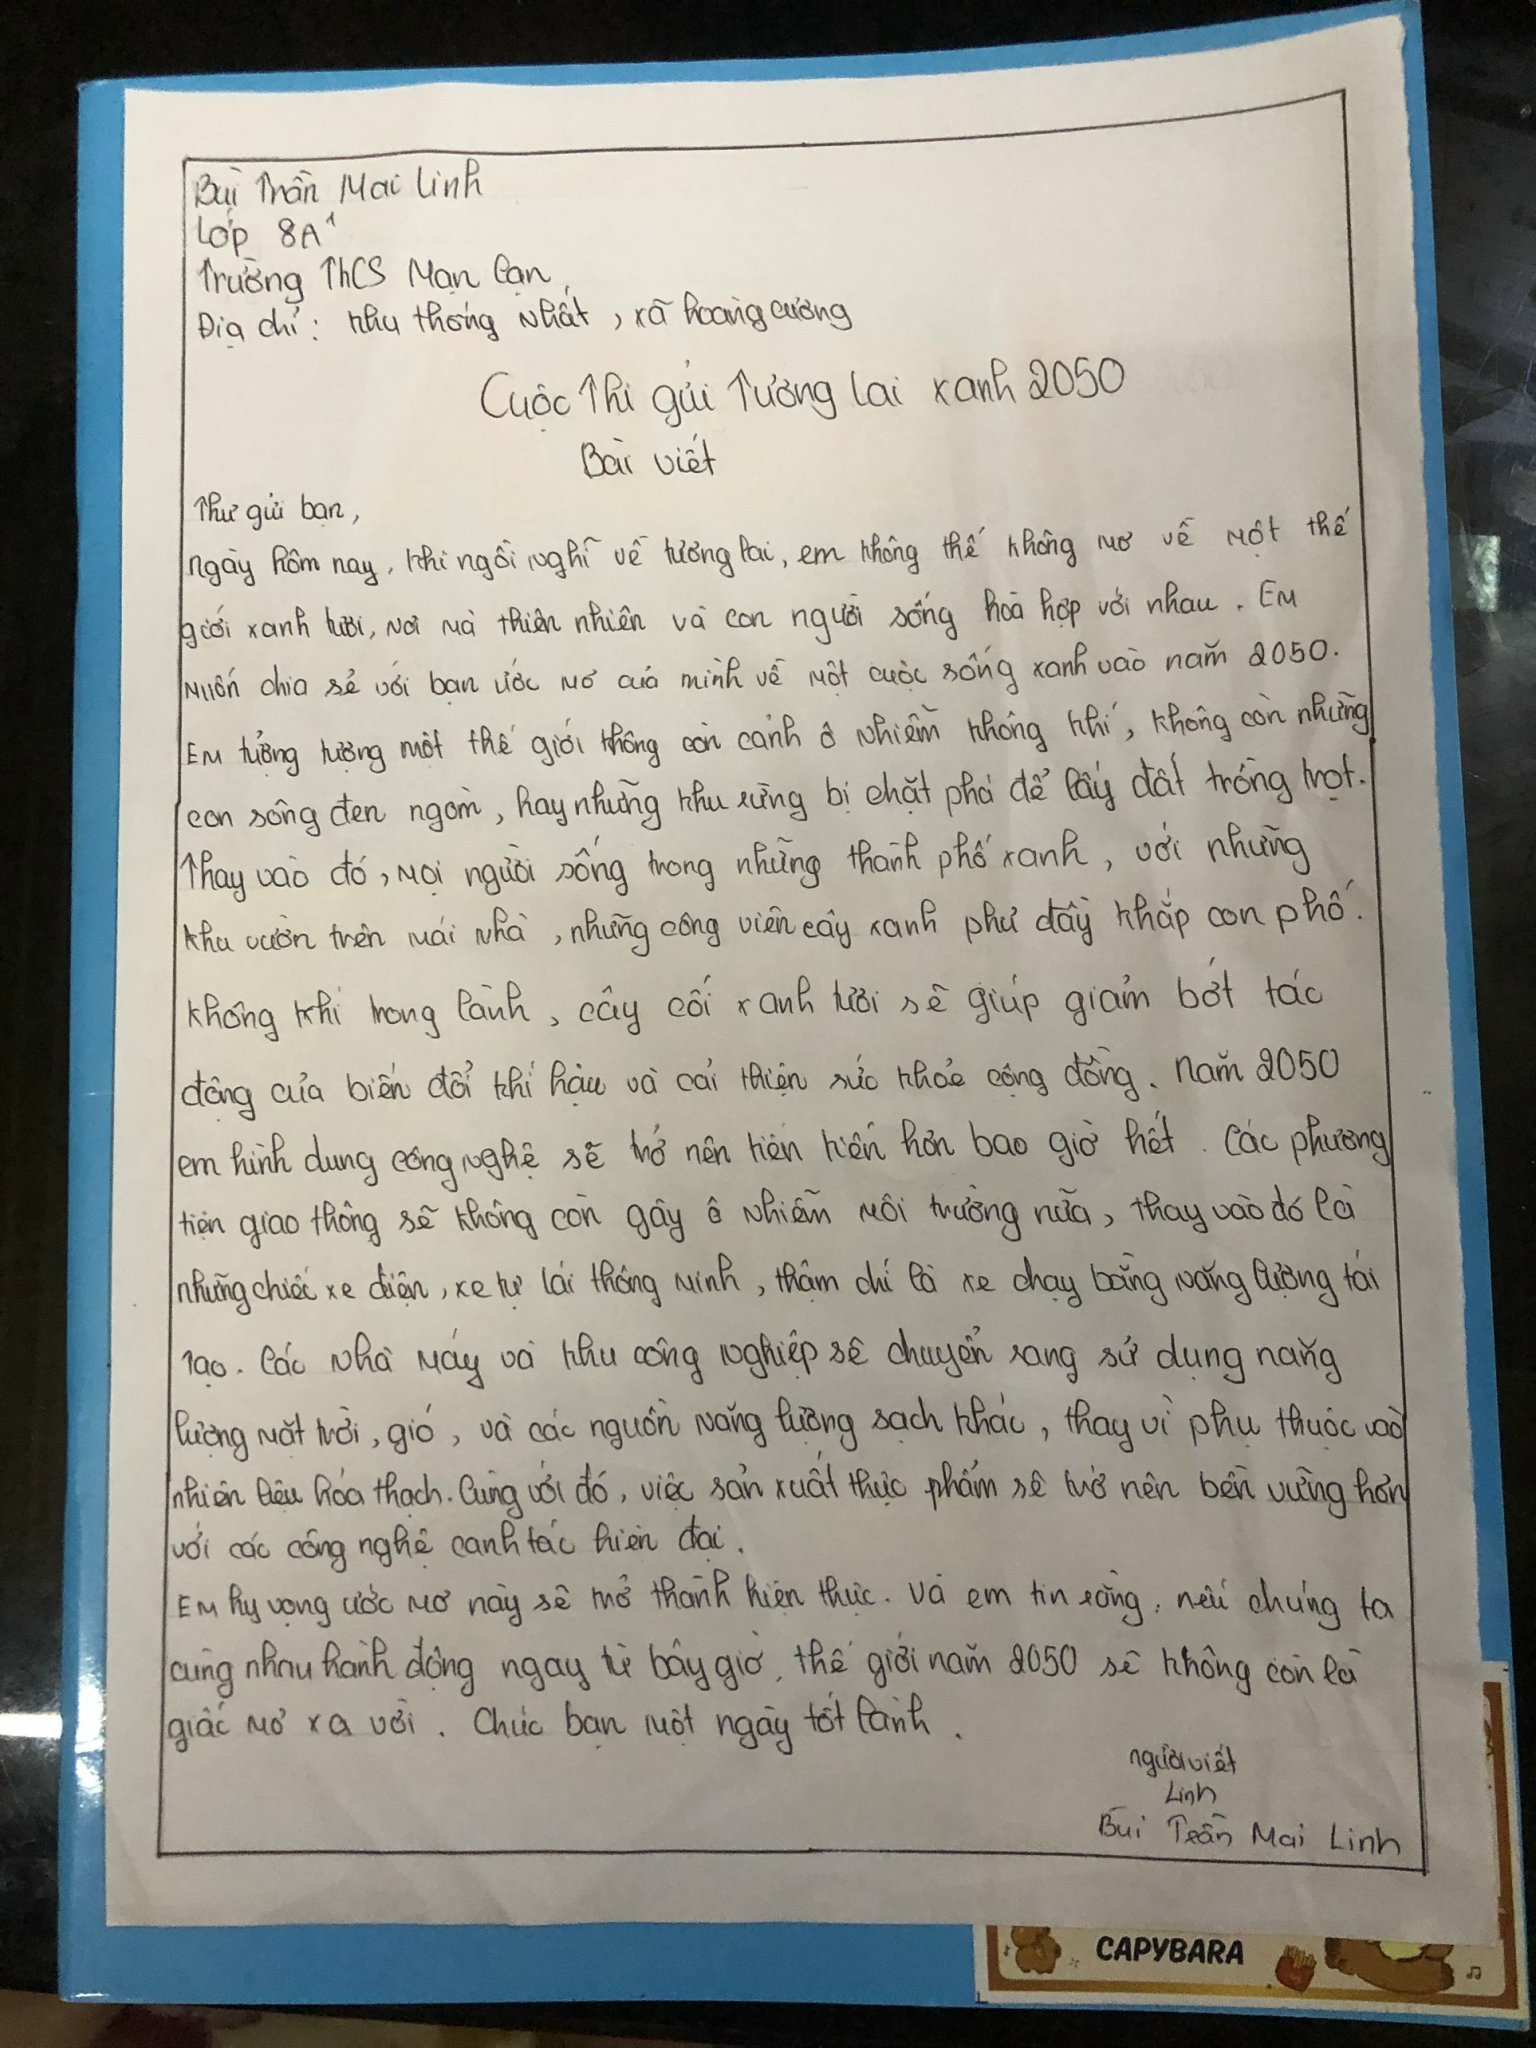 Bùi Trần Mai Linh
Lớp 8A1
Trường THCS Mạn Lạn
Địa chỉ: khu thống nhất, xã hoàng cương
Cuộc Thi gửi Tương lai xanh 2050
Bài viết
Thư gửi bạn,
Ngày hôm nay, khi ngồi nghĩ về tương lai, em không thể không mơ về một thế
giới xanh tươi, nơi mà thiên nhiên và con người sống hoà hợp với nhau. Em
muốn chia sẻ với bạn ước mơ của mình về một cuộc sống xanh vào năm 2050.
Em tưởng tượng một thế giới không còn cảnh ô nhiễm không khí, không còn những
con sông đen ngòm, hay những khu rừng bị chặt phá để lấy đất trồng trọt.
Thay vào đó, mọi người sống trong những thành phố xanh, với những
khu vườn trên mái nhà, những công viên cây xanh phư đầy khắp con phố.
không khí trong lành, cây cối xanh tươi sẽ giúp giảm bớt tác
động của biến đổi khí hậu và cải thiện sức khỏe cộng đồng. Năm 2050
em hình dung công nghệ sẽ trở nên tiên tiến hơn bao giờ hết. Các phương
tiện giao thông sẽ không còn gây ô nhiễm môi trường nữa, thay vào đó là
những chiếc xe điện, xe tự lái thông minh, thậm chí là xe chạy bằng năng lượng tái
tạo. Các nhà máy và khu công nghiệp sẽ chuyển sang sử dụng năng
lượng mặt trời, gió, và các nguồn năng lượng sạch khác, thay vì phụ thuộc vào
nhiên liệu hóa thạch. Cùng với đó, việc sản xuất thực phẩm sẽ trở nên bền vững hơn
với các công nghệ canh tác hiện đại.
Em hy vọng ước mơ này sẽ trở thành hiện thực. Và em tin rằng, nếu chúng ta
cùng nhau hành động ngay từ bây giờ, thế giới năm 2050 sẽ không còn là
giấc mơ xa vời. Chúc bạn một ngày tốt lành.
Người viết
Linh
Bùi Trần Mai Linh
CAPYBARA